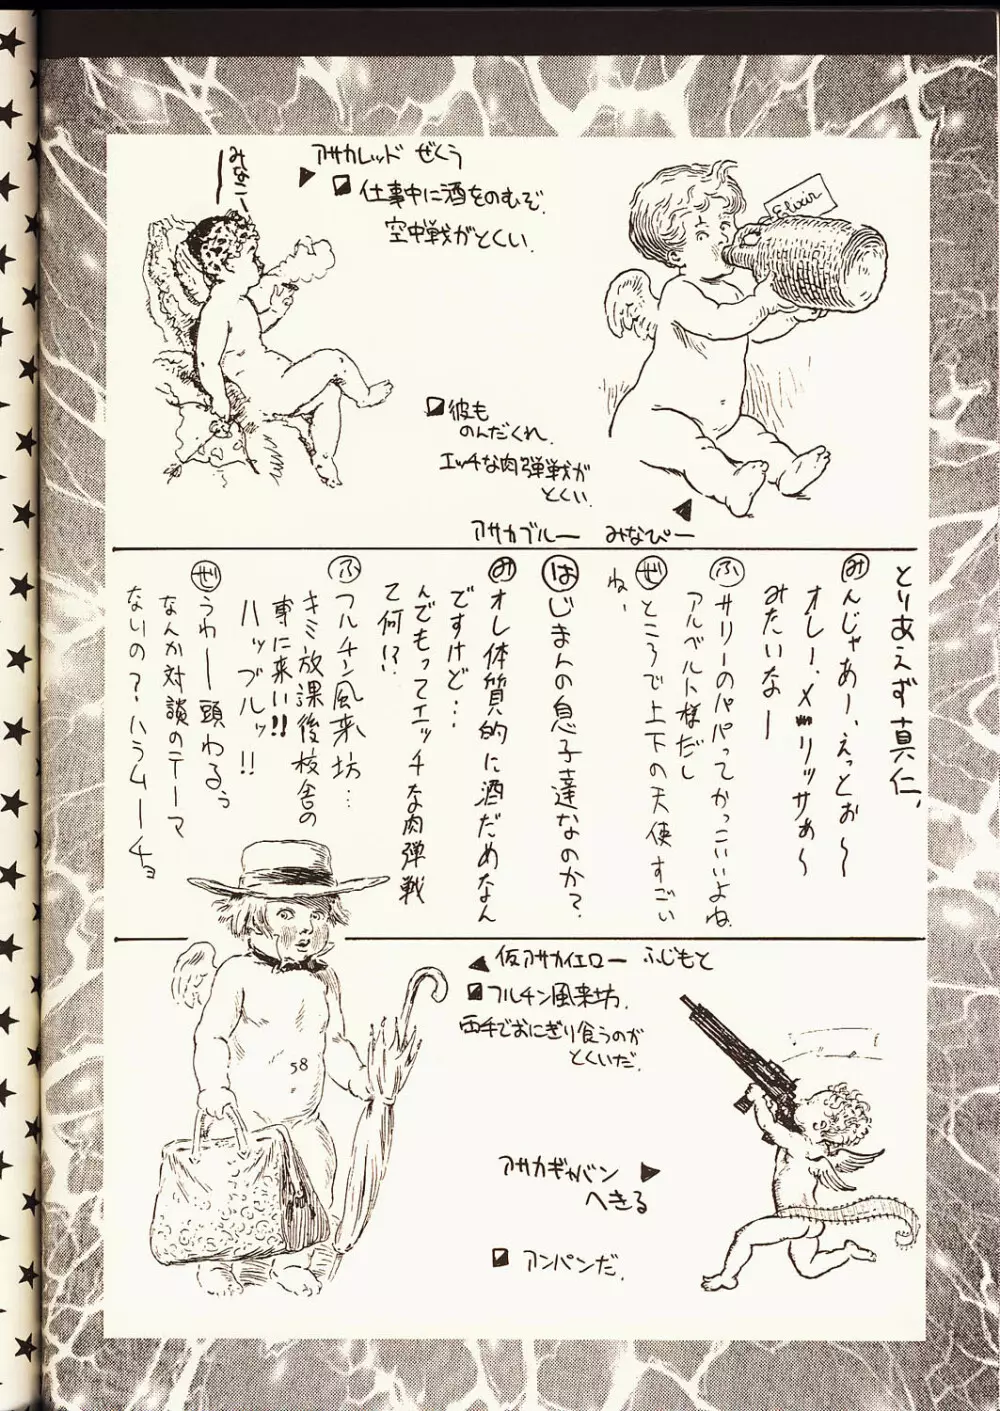 みなこー
アサカレッド ぜくう
仕事中に酒をのむぞ.
空中戦がとくい.
Elixir
彼も
のんだくれ.
エッチな肉弾戦が
とくい.
アサカブルー みなぴー
とりあえず真仁、
みんじゃあー、えっとぉ〜
オレー.メリッサぁ〜
みたいなー
ふサリーのパパってかっこいいよね.
アルベルト様だし
ぜところで上下の天使すごい
ね、
はじまんの息子達なのか?
みオレ体質的に酒だめなん
ですけど…
んでもってエッチな肉弾戦
て何!?
ふフルチン風来坊…
キミ放課後校舎の
事に来い!!
ハッブルッ!!
ぜうわー頭わるぅ
なんか対談のテーマ
ないの?ハラムーチョ
仮アサカイエロー ふじもと
フルチン風来坊.
両手でおにぎり食うのが
とくいだ.
58
アサカギャバン
へきる
アンパンだ.